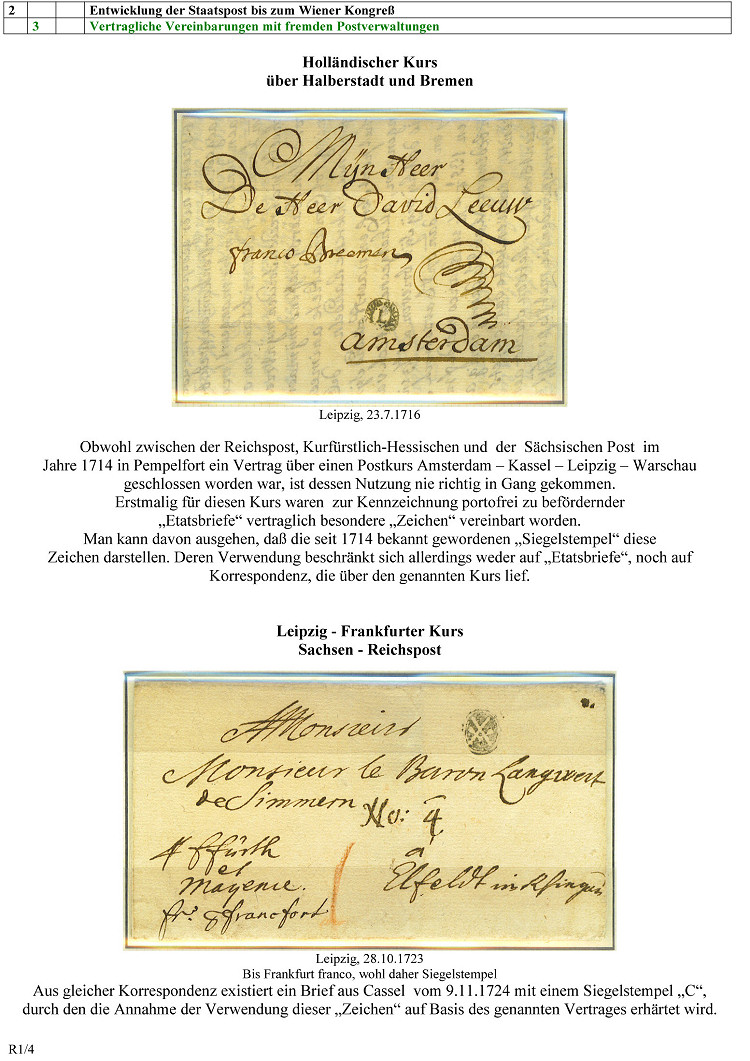 2 Entwicklung der Staatspost bis zum Wiener Kongreß
3 Vertragliche Vereinbarungen mit fremden Postverwaltungen
Holländischer Kurs
über Halberstadt und Bremen
Mÿn Heer
De Heer David Leeuw
franco Breemen
L
amsterdam
Leipzig, 23.7.1716
Obwohl zwischen der Reichspost, Kurfürstlich-Hessischen und der Sächsischen Post im
Jahre 1714 in Pempelfort ein Vertrag über einen Postkurs Amsterdam – Kassel – Leipzig – Warschau
geschlossen worden war, ist dessen Nutzung nie richtig in Gang gekommen.
Erstmalig für diesen Kurs waren zur Kennzeichnung portofrei zu befördernder
„Etatsbriefe“ vertraglich besondere „Zeichen“ vereinbart worden.
Man kann davon ausgehen, daß die seit 1714 bekannt gewordenen „Siegelstempel“ diese
Zeichen darstellen. Deren Verwendung beschränkt sich allerdings weder auf „Etatsbriefe“, noch auf
Korrespondenz, die über den genannten Kurs lief.
Leipzig - Frankfurter Kurs
Sachsen - Reichspost
A Monsieur
Monsieur le Baron Langwert
de Simmern
No: 4
à
ffürth
et
Mayence.
Elfeldt in
frº francfort
Leipzig, 28.10.1723
Bis Frankfurt franco, wohl daher Siegelstempel
Aus gleicher Korrespondenz existiert ein Brief aus Cassel vom 9.11.1724 mit einem Siegelstempel „C“,
durch den die Annahme der Verwendung dieser „Zeichen“ auf Basis des genannten Vertrages erhärtet wird.
R1/4